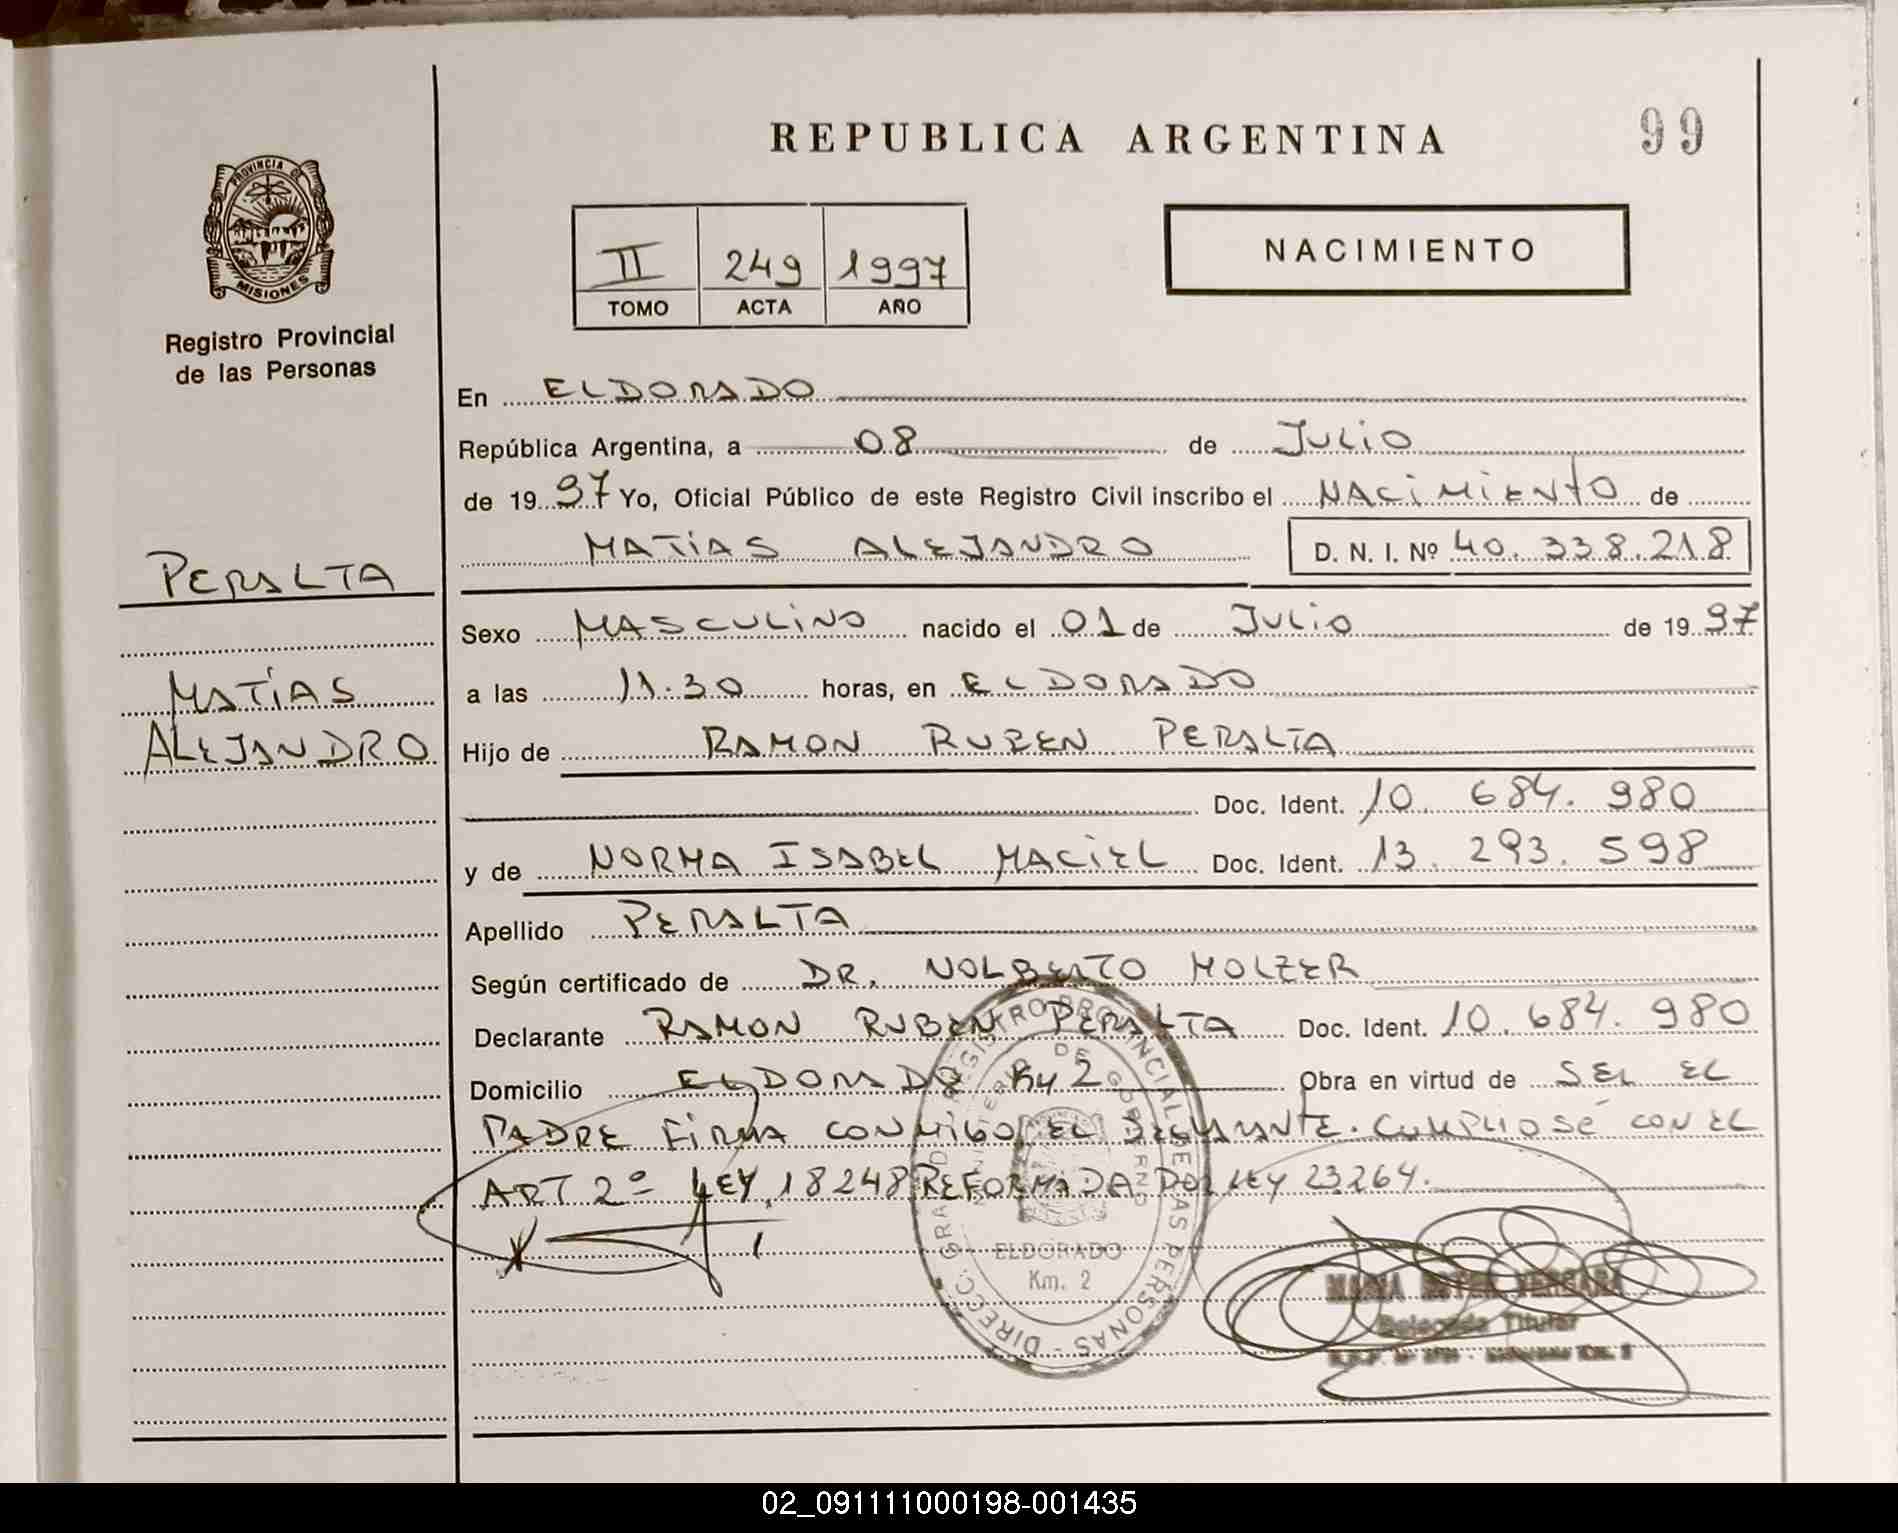 REPUBLICA ARGENTINA
99
PROVINCIA DE
MISIONES
Registro Provincial
de las Personas
II 249 1997
TOMO ACTA AÑO
NACIMIENTO
En ELDORADO
República Argentina, a 08 de JULIO
de 1997 Yo, Oficial Público de este Registro Civil inscribo el NACIMIENTO de
MATIAS ALEJANDRO D. N. I. Nº 40.338.218
PERALTA
MATÍAS
ALEJANDRO
Sexo MASCULINO nacido el 01 de JULIO de 1997
a las 11.30 horas, en ELDORADO
Hijo de RAMON RUBEN PERALTA
Doc. Ident. 10.684.980
y de NORMA ISABEL MACIEL Doc. Ident. 13.293.598
Apellido PERALTA
Según certificado de DR. NOLBERTO HOLZER
Declarante RAMON RUBEN PERALTA Doc. Ident. 10.684.980
Domicilio ELDORADO Km 2 Obra en virtud de SER EL
PADRE FIRMA CONMIGO EL DECLARANTE. CUMPLIOSÉ CON EL
ART 2º LEY 18248 REFORMADA POR LEY 23264.
DIRECC. GRAL. DE REGISTRO PROVINCIAL DE LAS PERSONAS
MINISTERIO DE GOBIERNO
ELDORADO
Km. 2
MARIA ESTER VERGARA
Delegada Titular
02_091111000198-001435